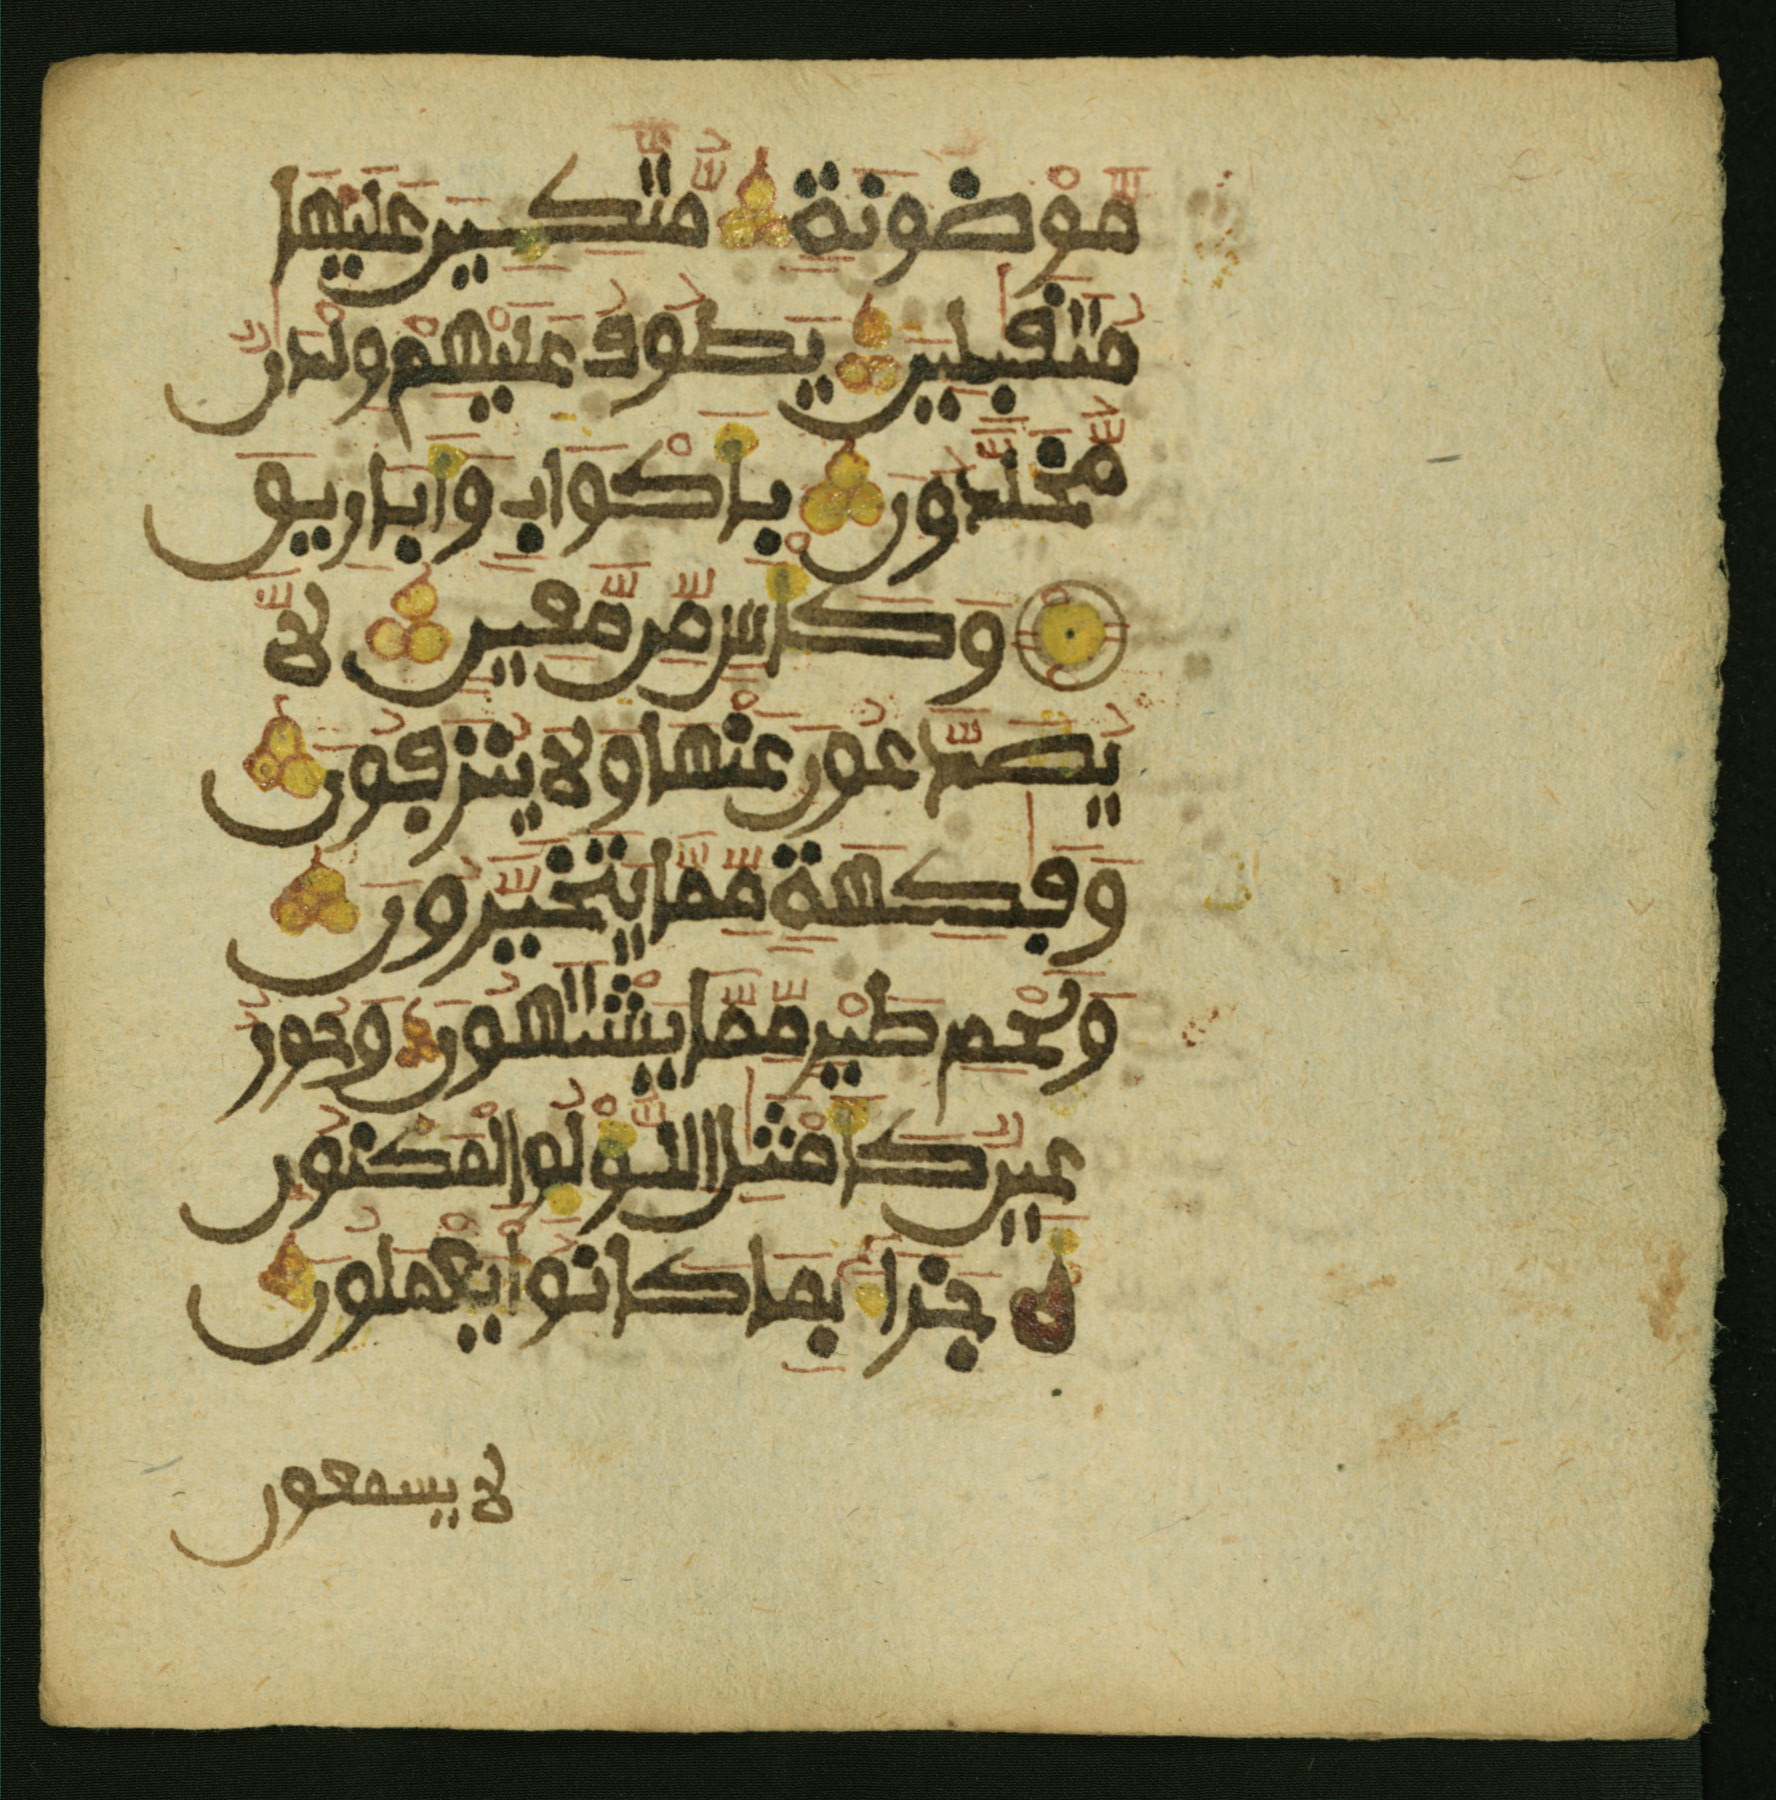 مَّوْضُونَةٍ مُّتَّكِـِٕينَ عَلَيْهَا
مُتَقَٰبِلِينَ يَطُوفُ عَلَيْهِمْ وِلْدَٰنٌ
مُّخَلَّدُونَ بِأَكْوَابٍ وَأَبَارِيقَ
وَكَأْسٍ مِّن مَّعِينٍ لَّا
يُصَدَّعُونَ عَنْهَا وَلَا يُنزَفُونَ
وَفَٰكِهَةٍ مِّمَّا يَتَخَيَّرُونَ
وَلَحْمِ طَيْرٍ مِّمَّا يَشْتَهُونَ وَحُورٌ
عِينٌ كَأَمْثَٰلِ اللُّؤْلُوِٕ الْمَكْنُونِ
جَزَآءَۢ بِمَا كَانُوا۟ يَعْمَلُونَ
لا يسمعون